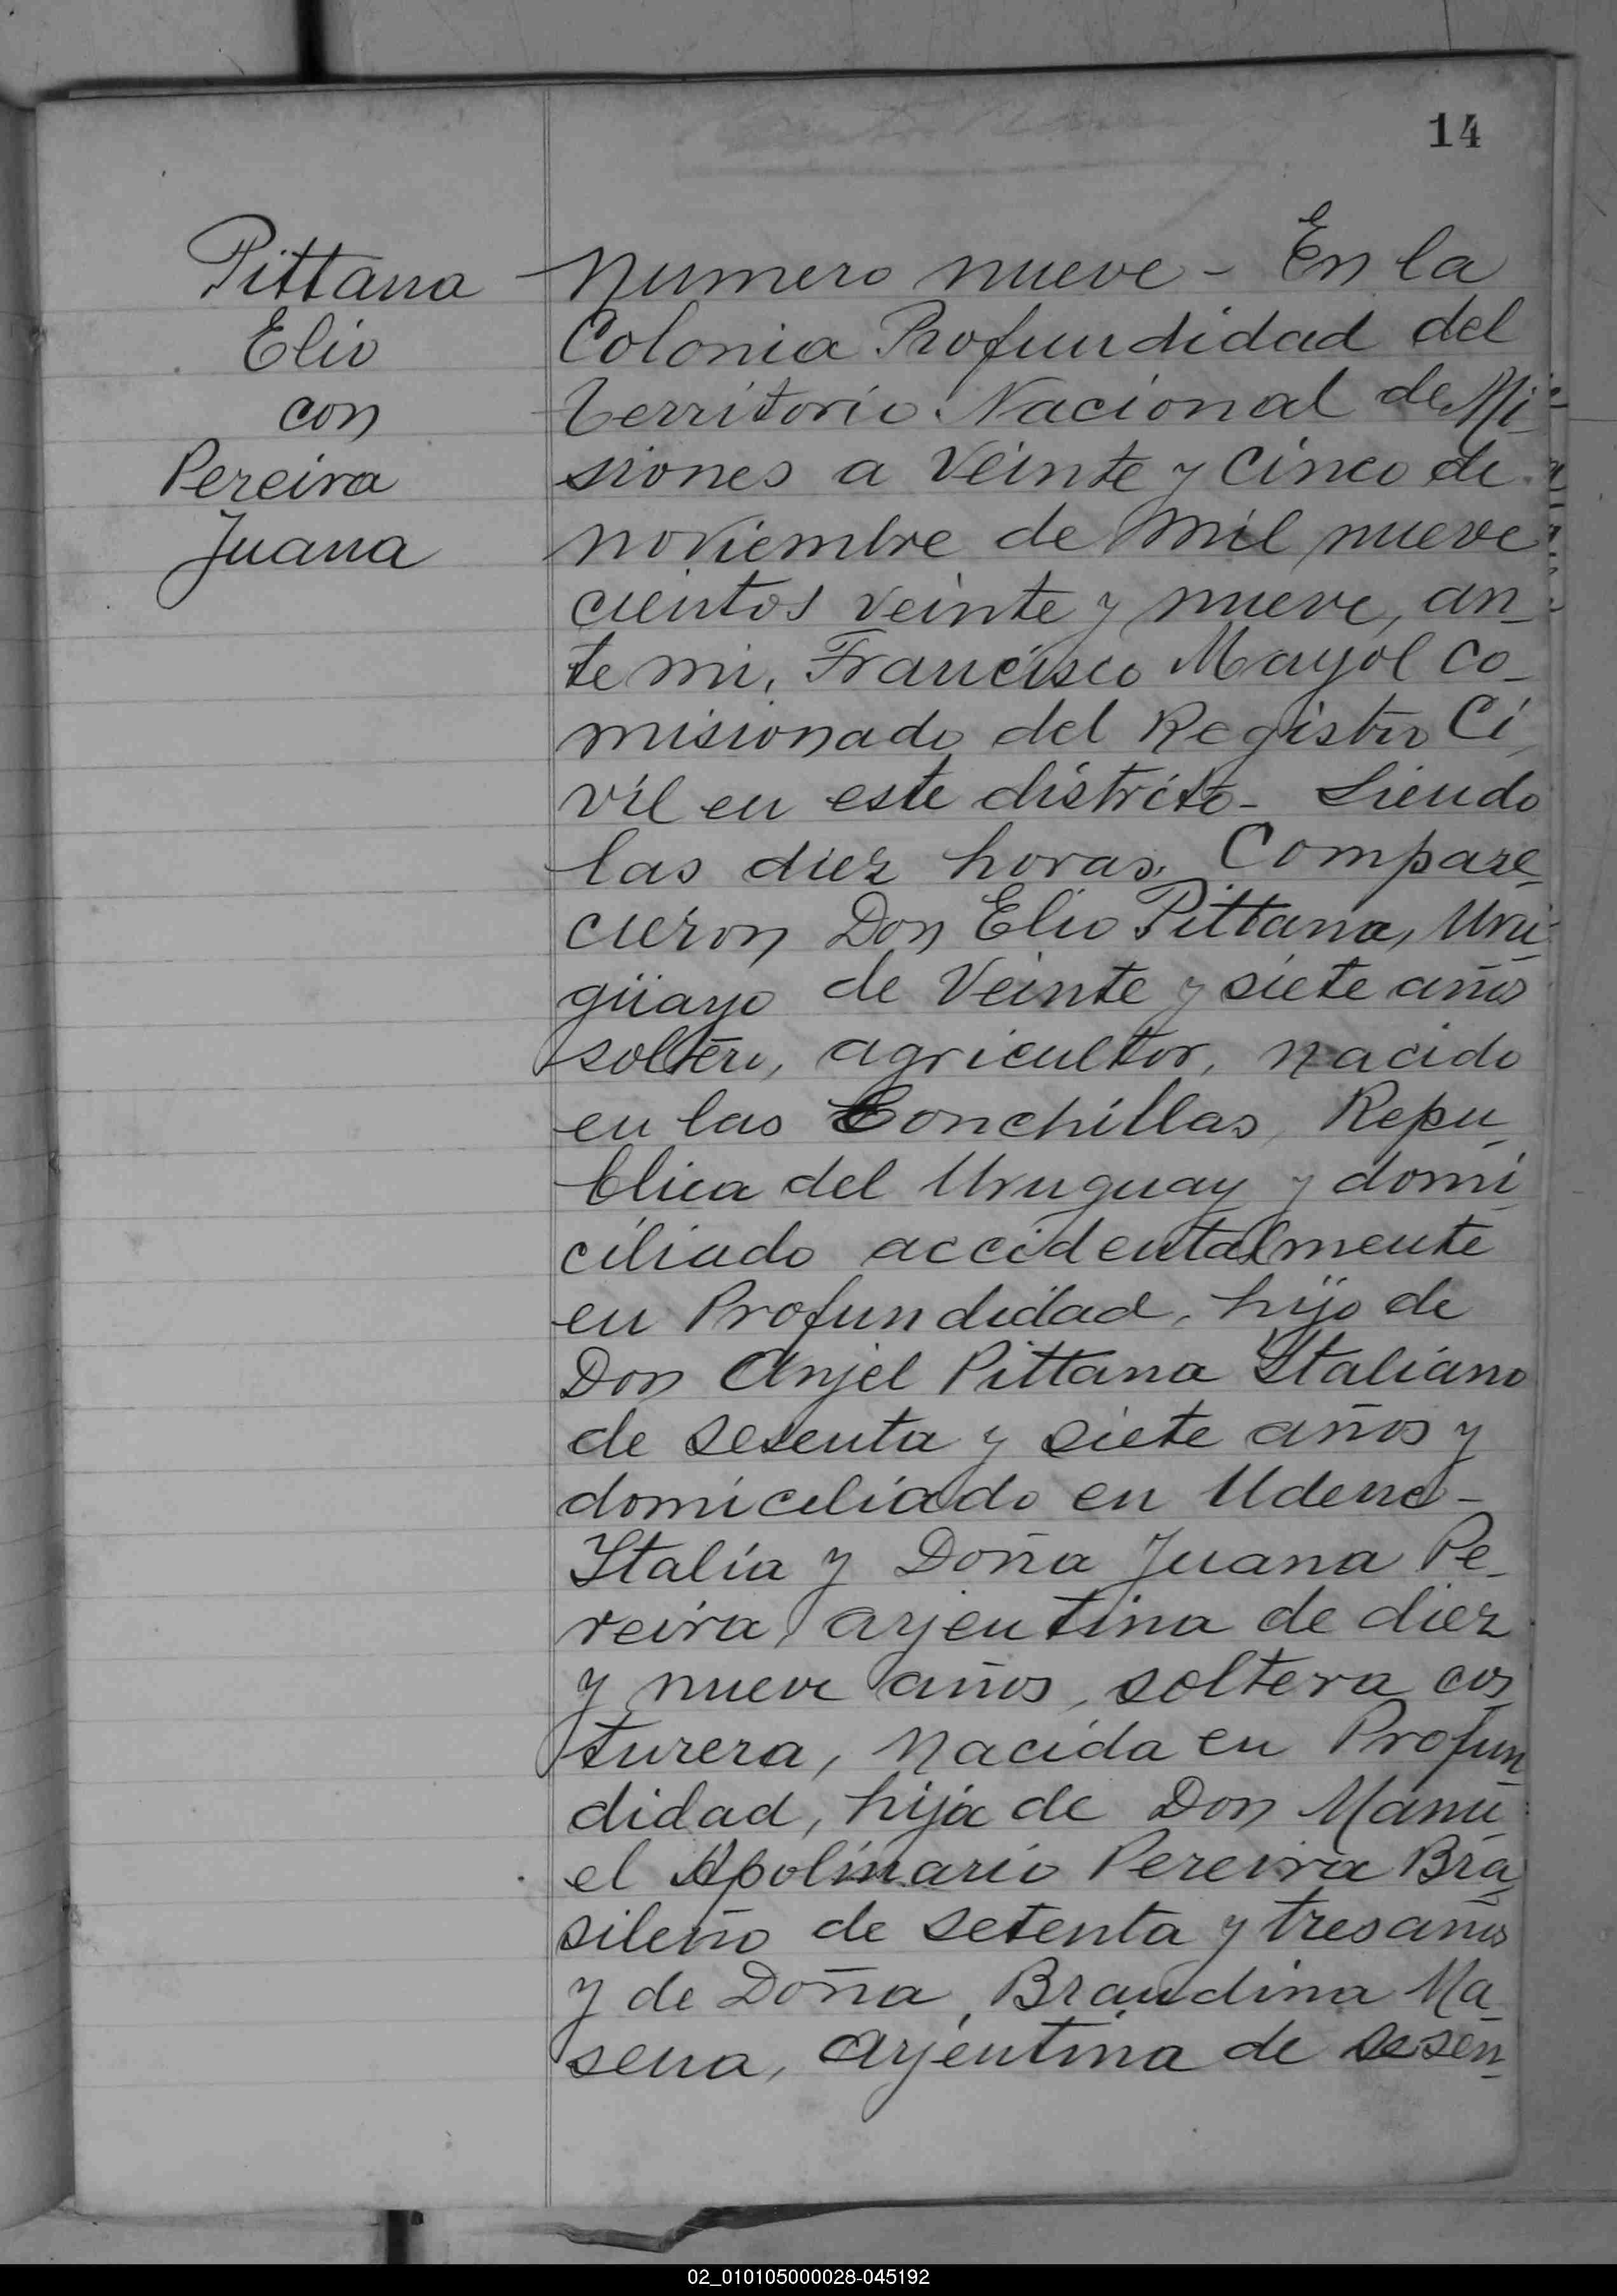 14
Pittana
Elio
con
Pereira
Juana
Numero nueve - En la
Colonia Profundidad del
Territorio Nacional de Mi-
siones a Veinte y Cinco de
noviembre de mil nueve
cientos veinte y nueve, an-
te mi, Francisco Mayol Co-
misionado del Registro Ci
vil en este distrito - Siendo
las diez horas. Compare-
cieron Don Elio Pittana, Uru-
güayo de Veinte y siete años
soltero, agricultor, nacido
en las Conchillas, Repu-
blica del Uruguay y domi-
ciliado accidentalmente
en Profundidad, hijo de
Don Anjel Pittana Italiano
de sesenta y siete años y
domiciliado en Udene -
Italia y Doña Juana Pe-
reira, arjentina de diez
y nueve años, soltera cos-
turera, nacida en Profun-
didad, hija de Don Manu-
el Apolinario Pereira Bra-
sileño de setenta y tres años
y de Doña Braudina Ma
sena, Arjentina de sesen-
02_010105000028-045192